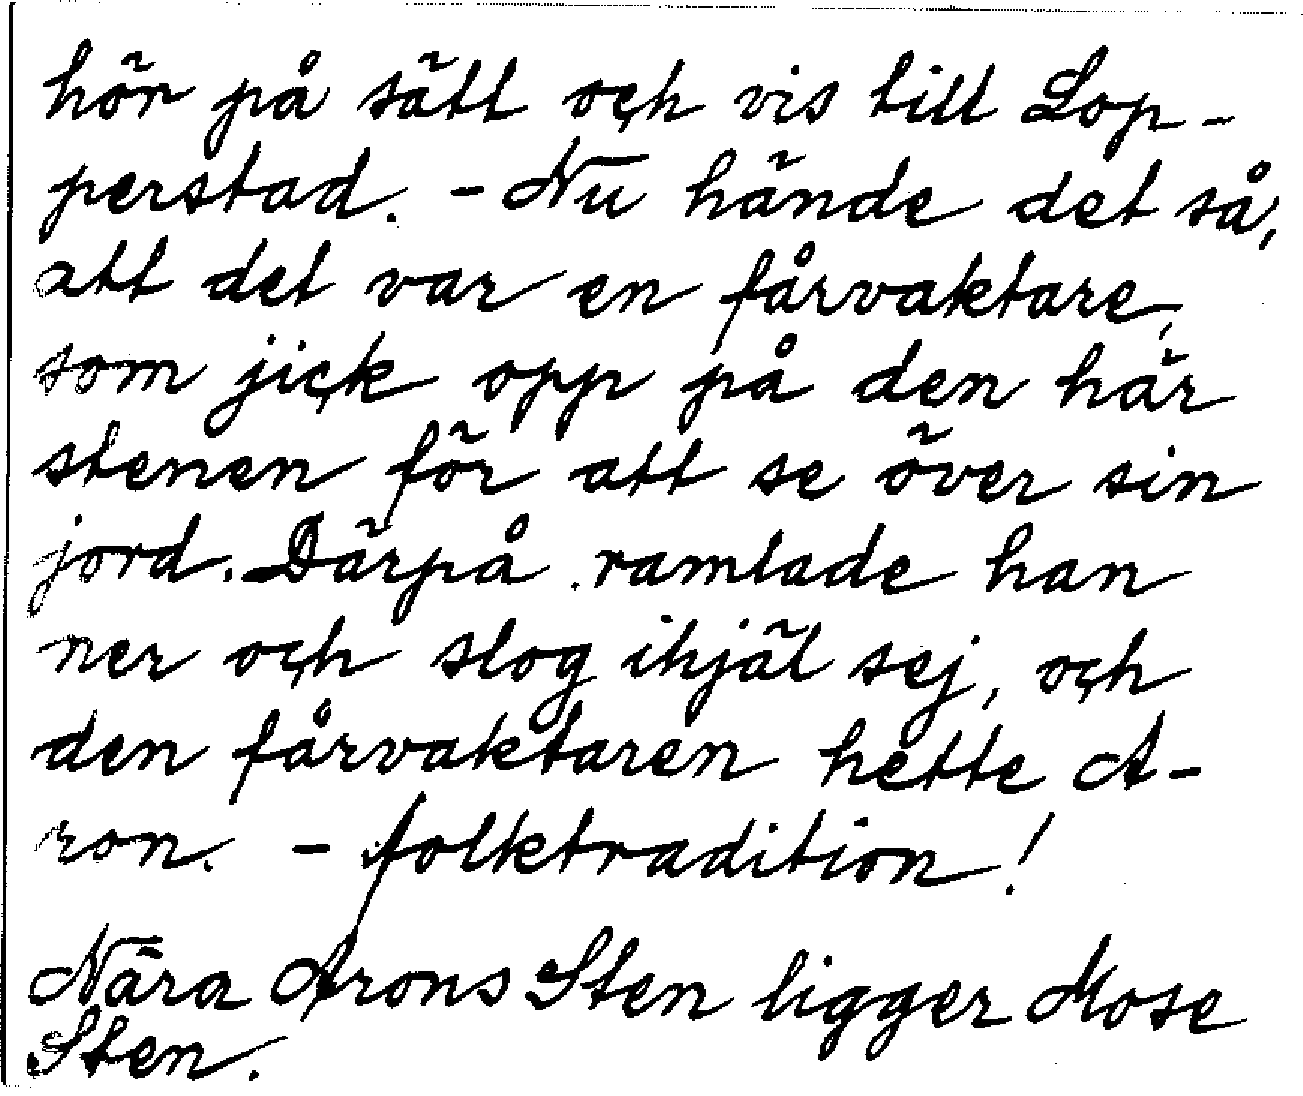 hör på sätt och vis till Lop-
perstad. - Nu hände det så,
att det var en fårvaktare,
som jick opp på den här
stenen för att se över sin
jord. Därpå ramlade han
ner och slog ihjäl sej, och
den fårvaktaren hette A-
ron. - folktradition!
Nära Arons Sten ligger Mose
Sten.